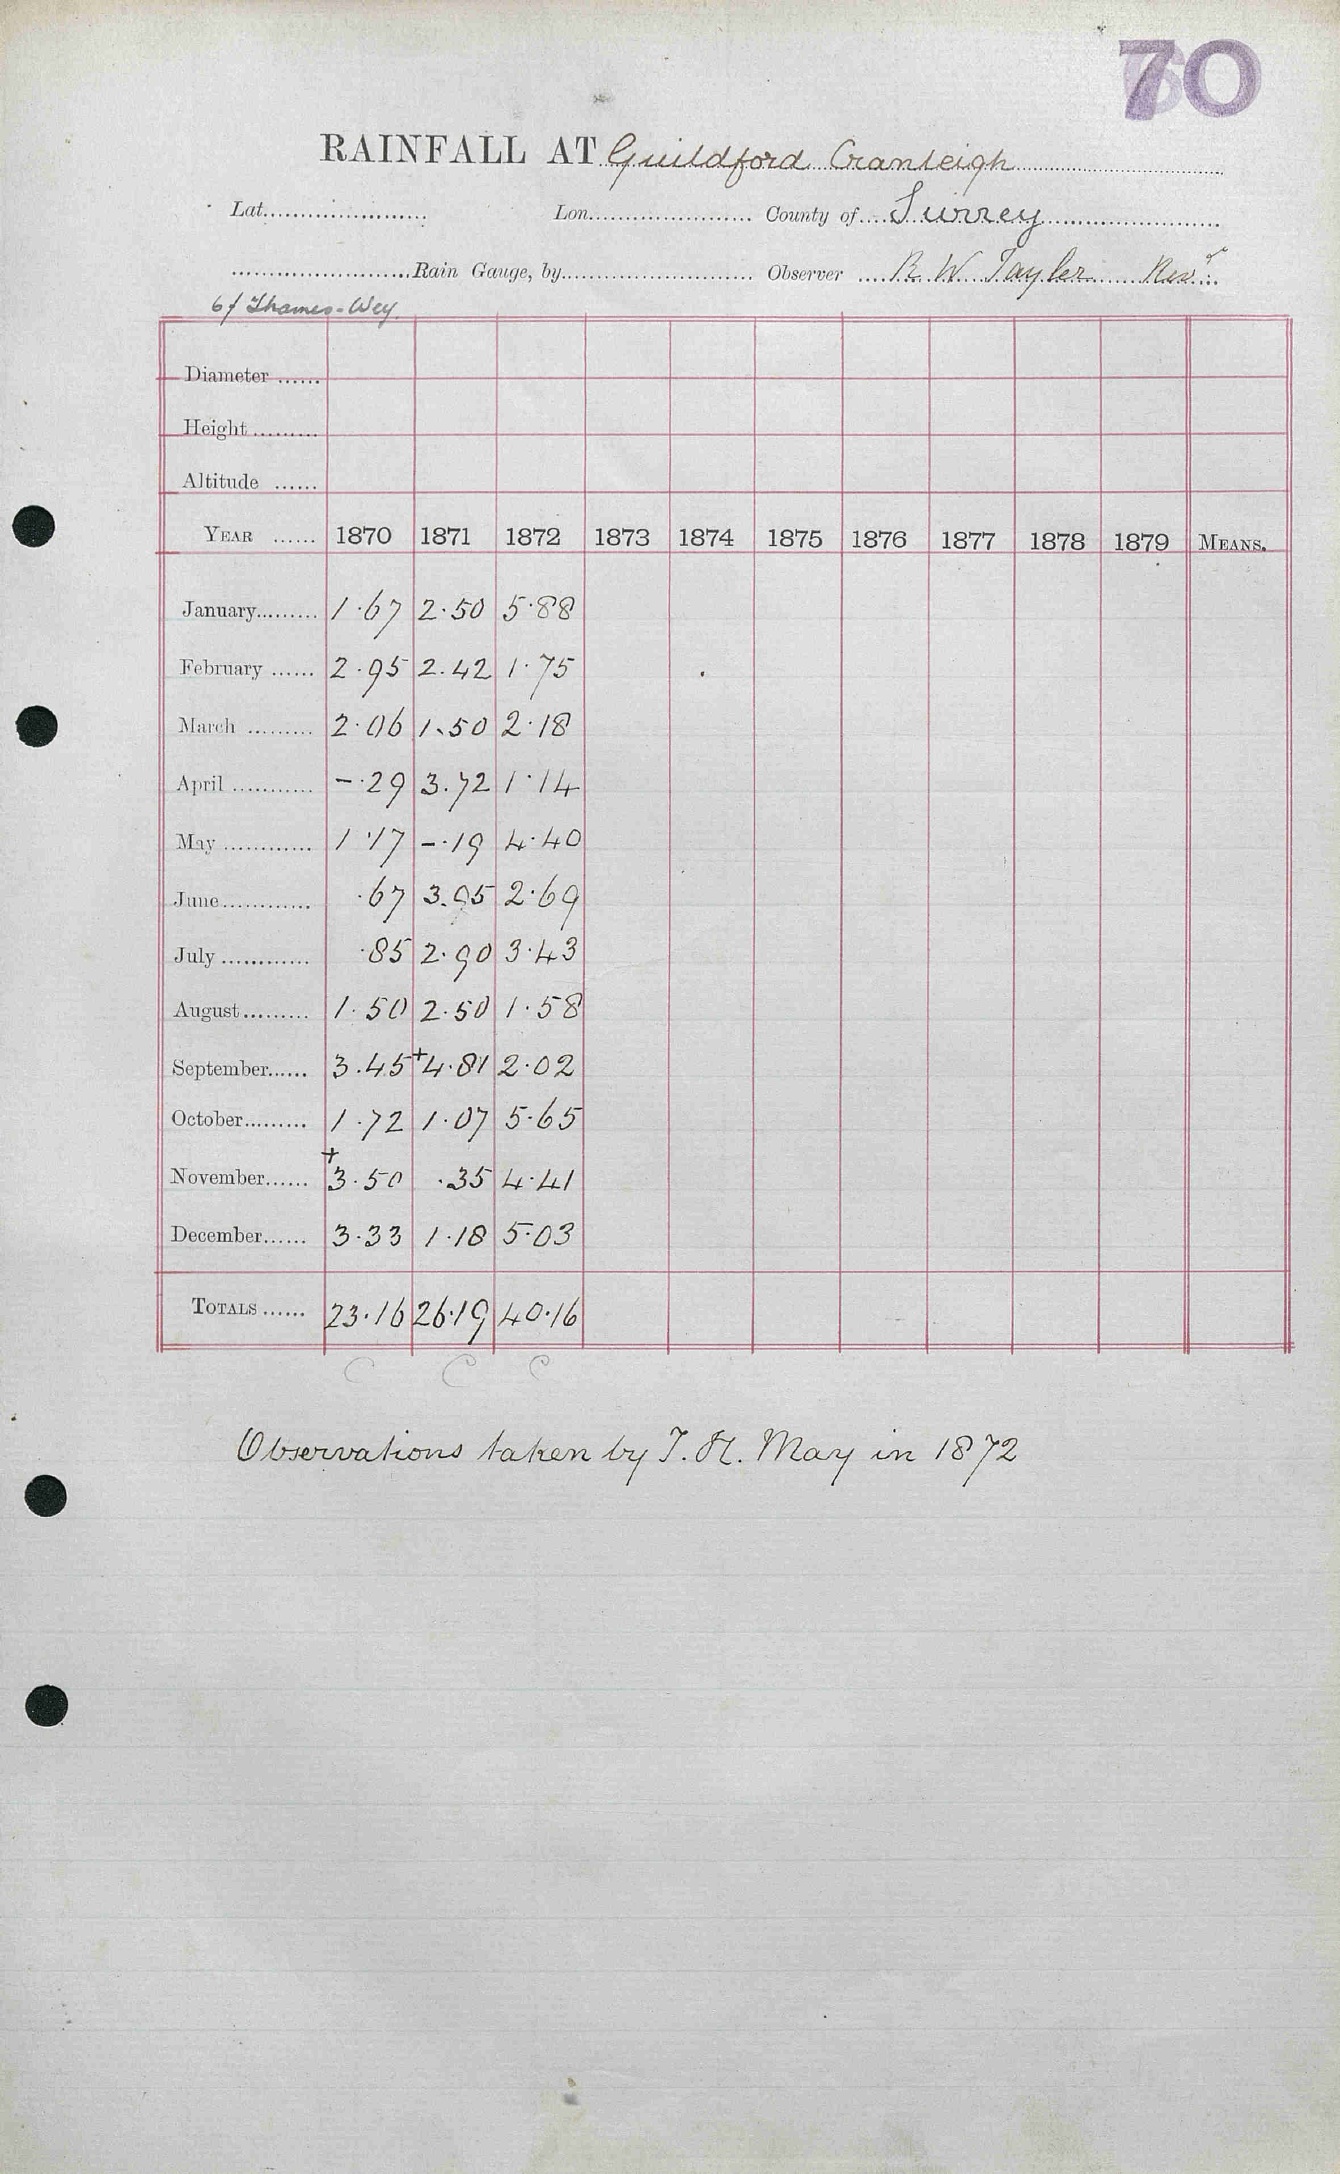 70
RAINFALL AT Guildford Cranleigh
Lat. Lon. County of Surrey
Rain Gauge, by Observer R W Tayler Revd
6f Thames-Wey
Diameter
Height
Altitude
YEAR 1870 1871 1872 1873 1874 1875 1876 1877 1878 1879 MEANS.
January 1.67 2.50 5.88
February 2.95 2.42 1.75
March 2.06 1.50 2.18
April -.29 3.72 1.14
May 1.17 -.19 4.40
June .67 3.05 2.69
July .85 2.90 3.43
August 1.50 2.50 1.58
September 3.45 +4.81 2.02
October 1.72 1.07 5.65
November +3.50 .35 4.41
December 3.33 1.18 5.03
TOTALS 23.16 26.19 40.16
C C C
Observations taken by T. H. May in 1872